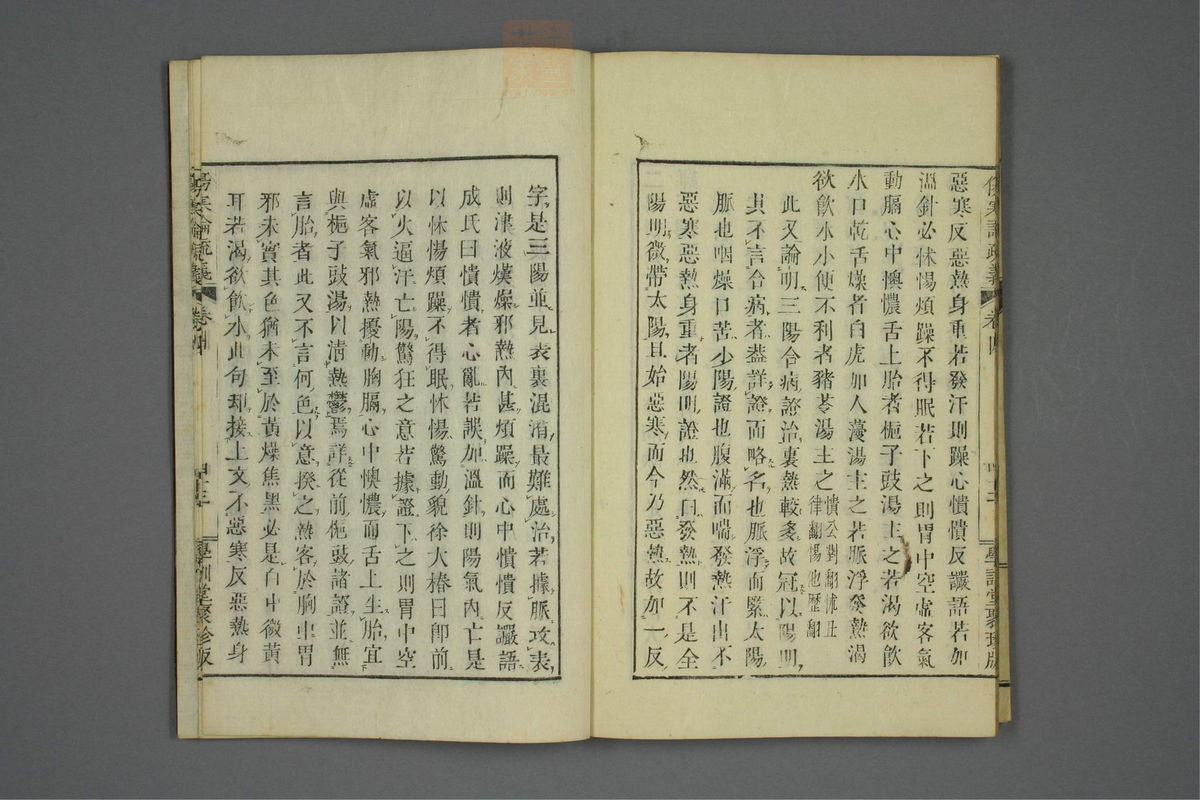 惡寒反惡熱身重若發汗則躁心憒憒反讝語若加
溫針必怵惕煩躁不得眠若下之則胃中空虛客氣
動膈心中懊憹舌上胎者梔子豉湯主之若渴欲飮
水口乾舌燥者白虎加人薓湯主之若脈浮發熱渴
欲飮水小便不利者豬苓湯主之
憒公對翻怵丑
律翻惕他歷翻
此又論明三陽合病證治裏熱較多故冠以陽明
其不言合病者葢詳證而略名也脈浮而緊太陽
脈也咽燥口苦少陽證也腹滿而喘發熱汗出不
惡寒惡熱身重者陽明證也然曰發熱則不是全
陽明微帶太陽且始惡寒而今乃惡熱故加一反
字是三陽並見表裏混淆最難處治若據脈攻表
則津液熯燥邪熱內甚煩躁而心中憒憒反讝語
成氏曰憒憒者心亂若誤加溫針則陽氣內亡是
以怵惕煩躁不得眠怵惕驚動貌徐大椿曰卽前
以火逼汗亡陽驚狂之意若據證下之則胃中空
虛客氣邪熱擾動胸膈心中懊憹而舌上生胎宜
與梔子豉湯以淸熱鬱焉詳從前梔豉諸證並無
言胎者此又不言何色以意揆之熱客於胸中胃
邪未實其色猶未至於黃燥焦黑必是白中微黃
耳若渴欲飮水此句却接上文不惡寒反惡熱身
傷寒論疏義
卷四
四十三
學訓堂聚珍版